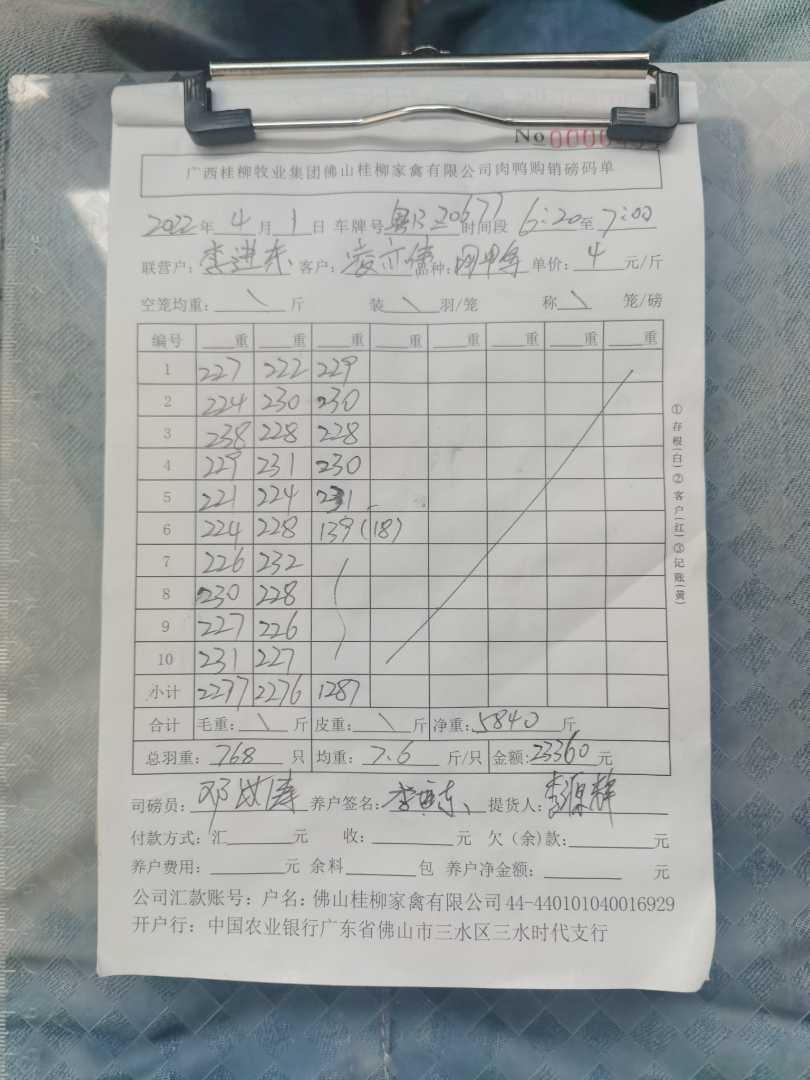 No 0000
广西桂柳牧业集团佛山桂柳家禽有限公司肉鸭购销磅码单
2022年 4 月 1 日 车牌号 粤 20677 时间段 6:20 至 7:00
联营户: 李进东 客户: 凌亦伟 品种: 单价: 4 元/斤
空笼均重: \ 斤 装 \ 羽/笼 称 \ 笼/磅
编号 重 重 重 重 重 重 重 重
1 227 222 229
2 224 230 230
3 238 228 228
4 229 231 230
5 221 224 231
6 224 228 139(18)
7 226 232
8 230 228
9 227 226
10 231 227
小计 2277 2276 1287
合计 毛重: \ 斤 皮重: \ 斤 净重: 5840 斤
总羽重: 768 只 均重: 7.6 斤/只 金额: 23360 元
司磅员: 邓 涛 养户签名: 李 东 提货人: 李源辉
付款方式: 汇 元 收: 元 欠(余)款: 元
养户费用: 元 余料 包 养户净金额: 元
公司汇款账号: 户名: 佛山桂柳家禽有限公司 44-440101040016929
开户行: 中国农业银行广东省佛山市三水区三水时代支行
①存根(白)②客户(红)③记账(黄)